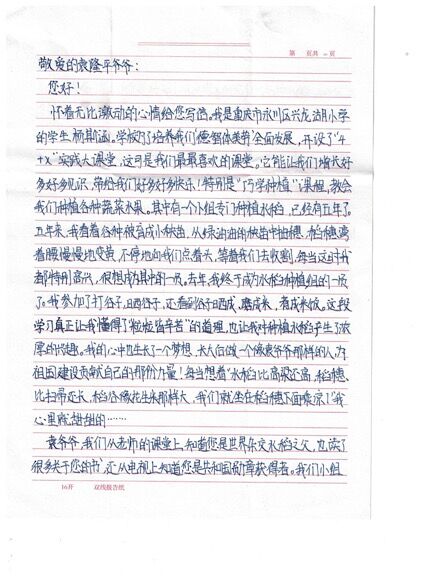 第 页共 页
敬爱的袁隆平爷爷：
您好！
怀着无比激动的心情给您写信。我是重庆市永川区兴龙湖小学
的学生杨 涵。学校为了培养我们德智体美劳全面发展，开设了“4
+X”实践大课堂，这可是我们最最喜欢的课堂。它能让我们增长好
多好多见识，带给我们好多好多快乐！特别是“巧学种植”课程，教会
我们种植各种蔬菜水果。其中有一个小组专门种植水稻，已经有五年了。
五年来，我看着谷种被育成小秧苗，从绿油油的秧苗中抽穗，稻穗弯
着腰慢慢地变黄，不停地向我们点着头，等着我们去收割，每当这时我
都特别高兴，很想成为其中的一员。去年，我终于成为水稻种植组的一员
了。我参加了打谷子、晒谷子，还看到谷子晒成、磨成米，煮成米饭。这段
学习真正让我懂得了“粒粒皆辛苦”的道理，也让我对种植水稻产生了浓
厚的兴趣。我的心中也生长了一个梦想，长大后做一个像袁爷爷那样的人，为
祖国建设贡献自己的那份力量！每当想着“水稻比高粱还高，稻穗
比扫帚还长，稻谷像花生米那样大，我们就坐在稻穗下面乘凉！”我
心里就甜甜的……
袁爷爷，我们从老师的课堂上知道您是世界杂交水稻之父，也读了
很多关于您的书，还从电视上知道您是共和国勋章获得者。我们小组
16开 双线报告纸